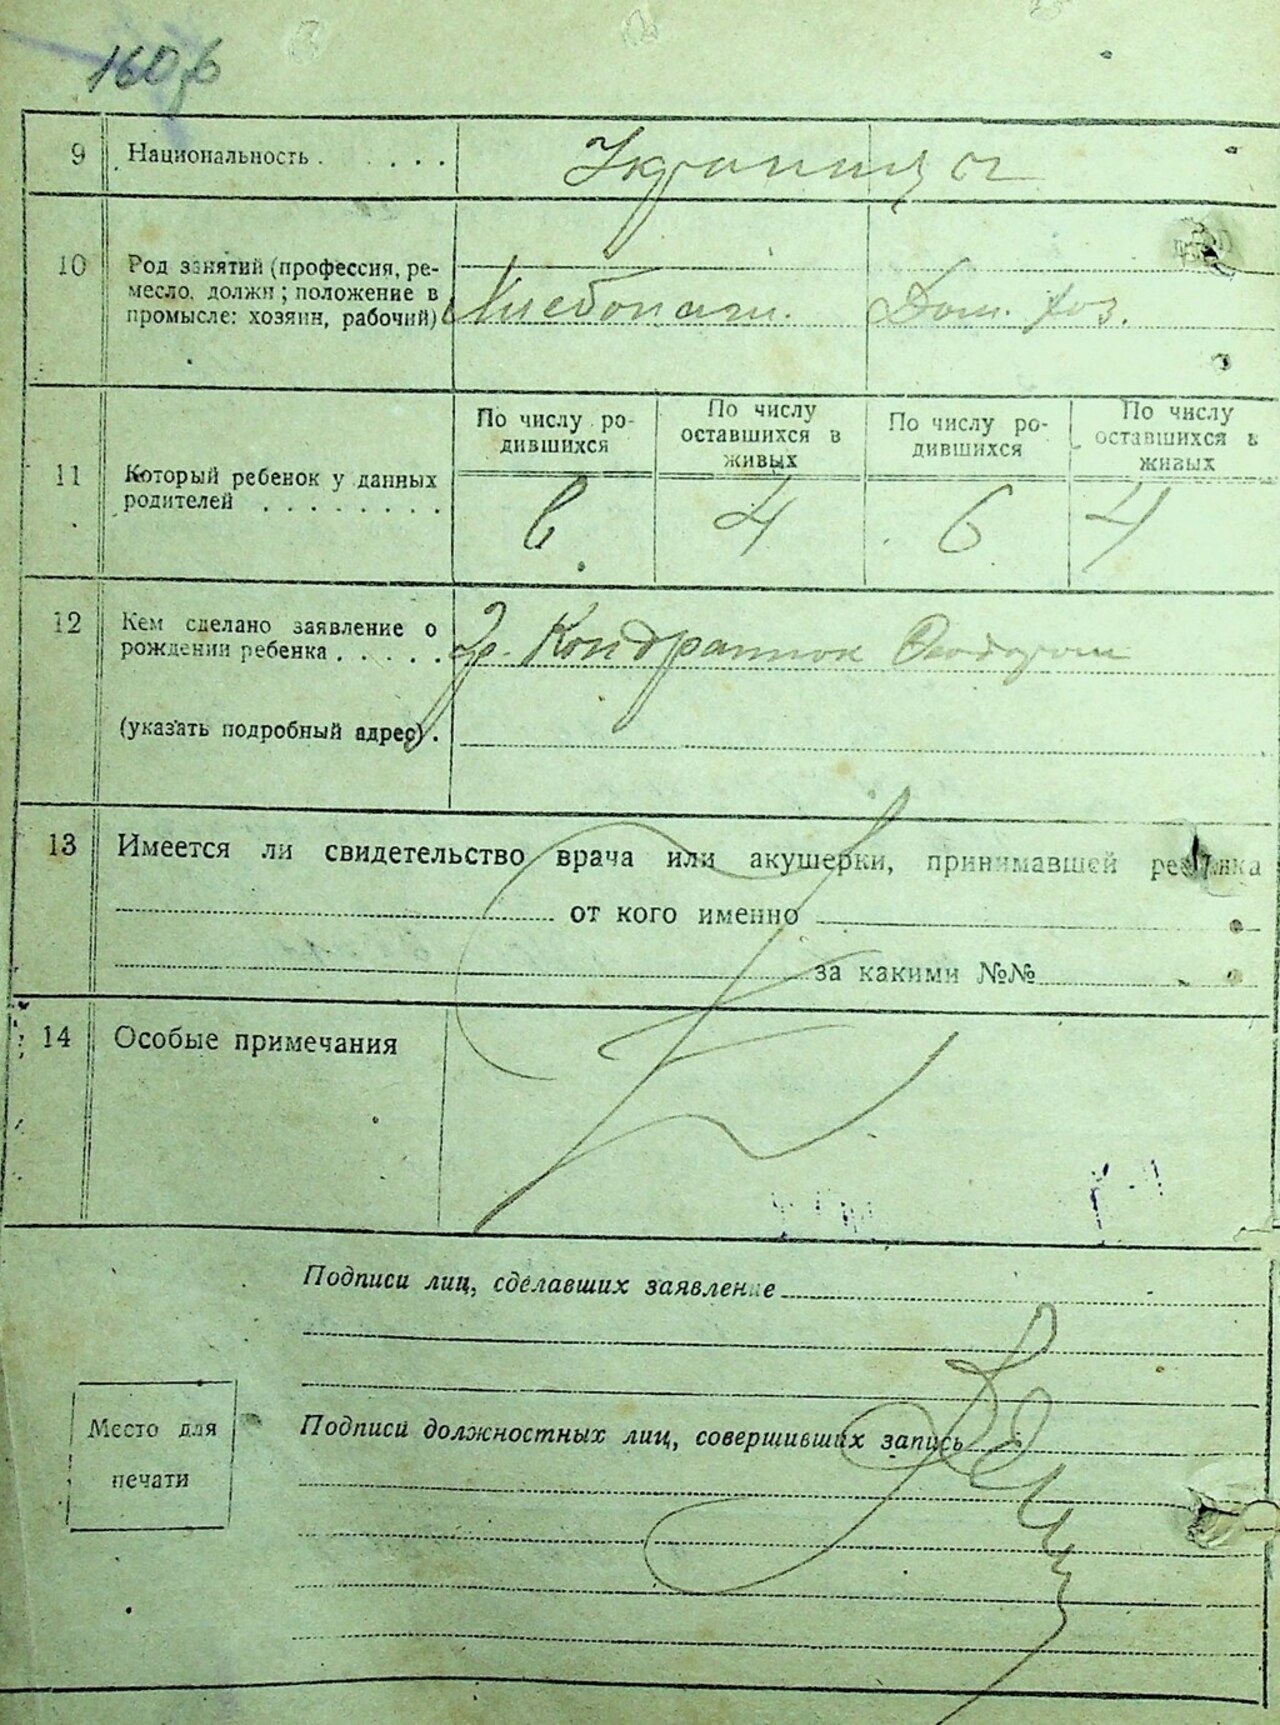 160
9 Национальность . . . . . Украинцы
10 Род занятий (профессия, ре-
месло, должн; положение в
промысле: хозяин, рабочий) Хлебопаш. Дом. хоз.
По числу ро-
дившихся
По числу
оставшихся в
живых
По числу ро-
дившихся
По числу
оставшихся в
живых
11 Который ребенок у данных
родителей . . . . . . . .
6 4 6 4
12 Кем сделано заявление о
рождении ребенка . . . . . гр. Кондратюк
(указать подробный адрес) .
13 Имеется ли свидетельство врача или акушерки, принимавшей ребенка
от кого именно
за какими №№
14 Особые примечания
Подписи лиц, сделавших заявление
Подписи должностных лиц, совершивших запись
Место для
печати